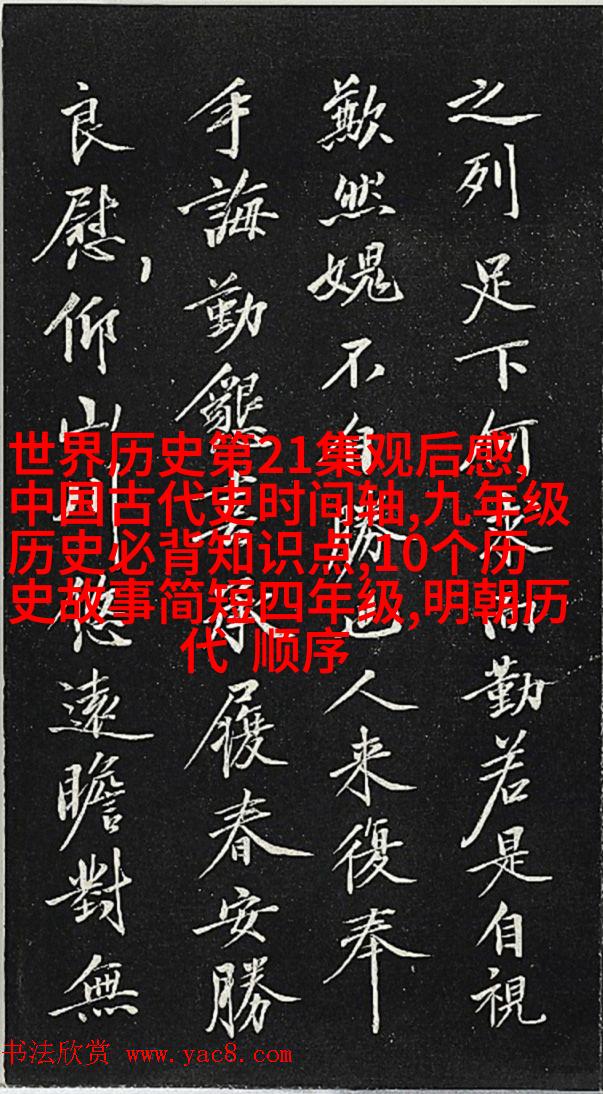 之列足下何而勤若是自視
歉然媿不自勝也人来復奉
手誨勤懇喜承履春安勝
良慰,仰山川悠遠瞻對無
世界历史第21集观后感,
中国古代史时间轴,九年级
历史必背知识点,10个历
史故事简短四年级,明朝历
代 顺序
书法欣赏 www.yac8.com